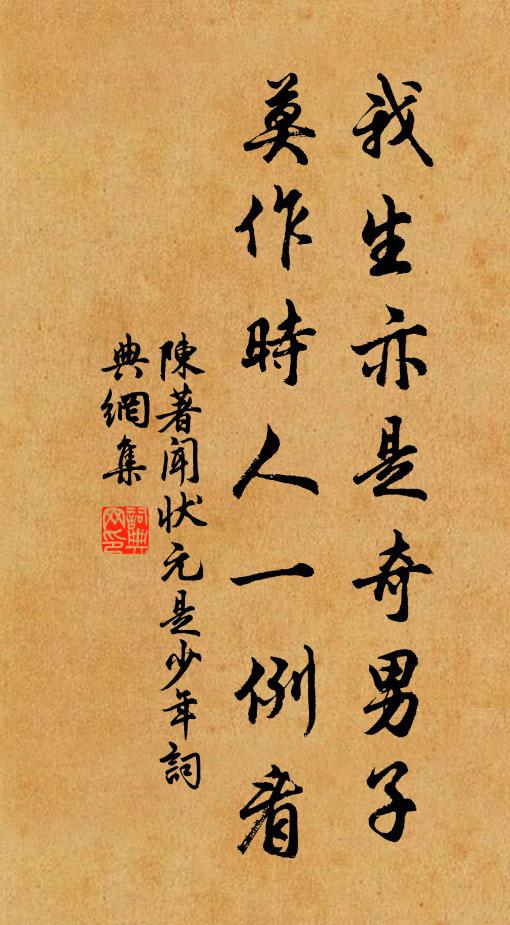 我生亦是奇男子
莫作時人一例看
陳著聞狀元是少年詞
典網集
詞典網印